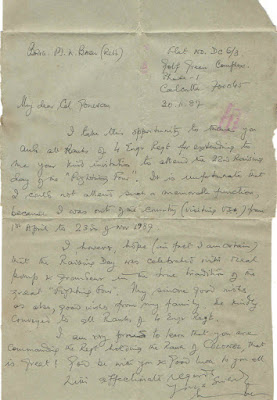 Flat No. DC 6/3
Golf Green Complex
Phase-1
Calcutta 700045
30.11.87
My dear Col
I take this opportunity to thank you
and all Ranks of 4 Engr Regt for extending to
me your kind invitation to attend the 22nd Raising
day of the "Fighting Four". It is so unfortunate that
I could not attend such a memorable function,
because I was out of the country (visiting USA) from
1st April to 23rd of Nov 1987
I however, hope (in fact I am certain)
that the Raising Day was celebrated with real
pomp & grandeur in the true tradition of the
great "Fighting Four". My sincere good wishes
as also, good wishes from my family be kindly
conveyed to all Ranks of 4 Engr Regt.
I am very proud to learn that you are
commanding the Regt holding the Rank of Colonel, that
is great! God be with you & Good luck to you all
With affectionate regards